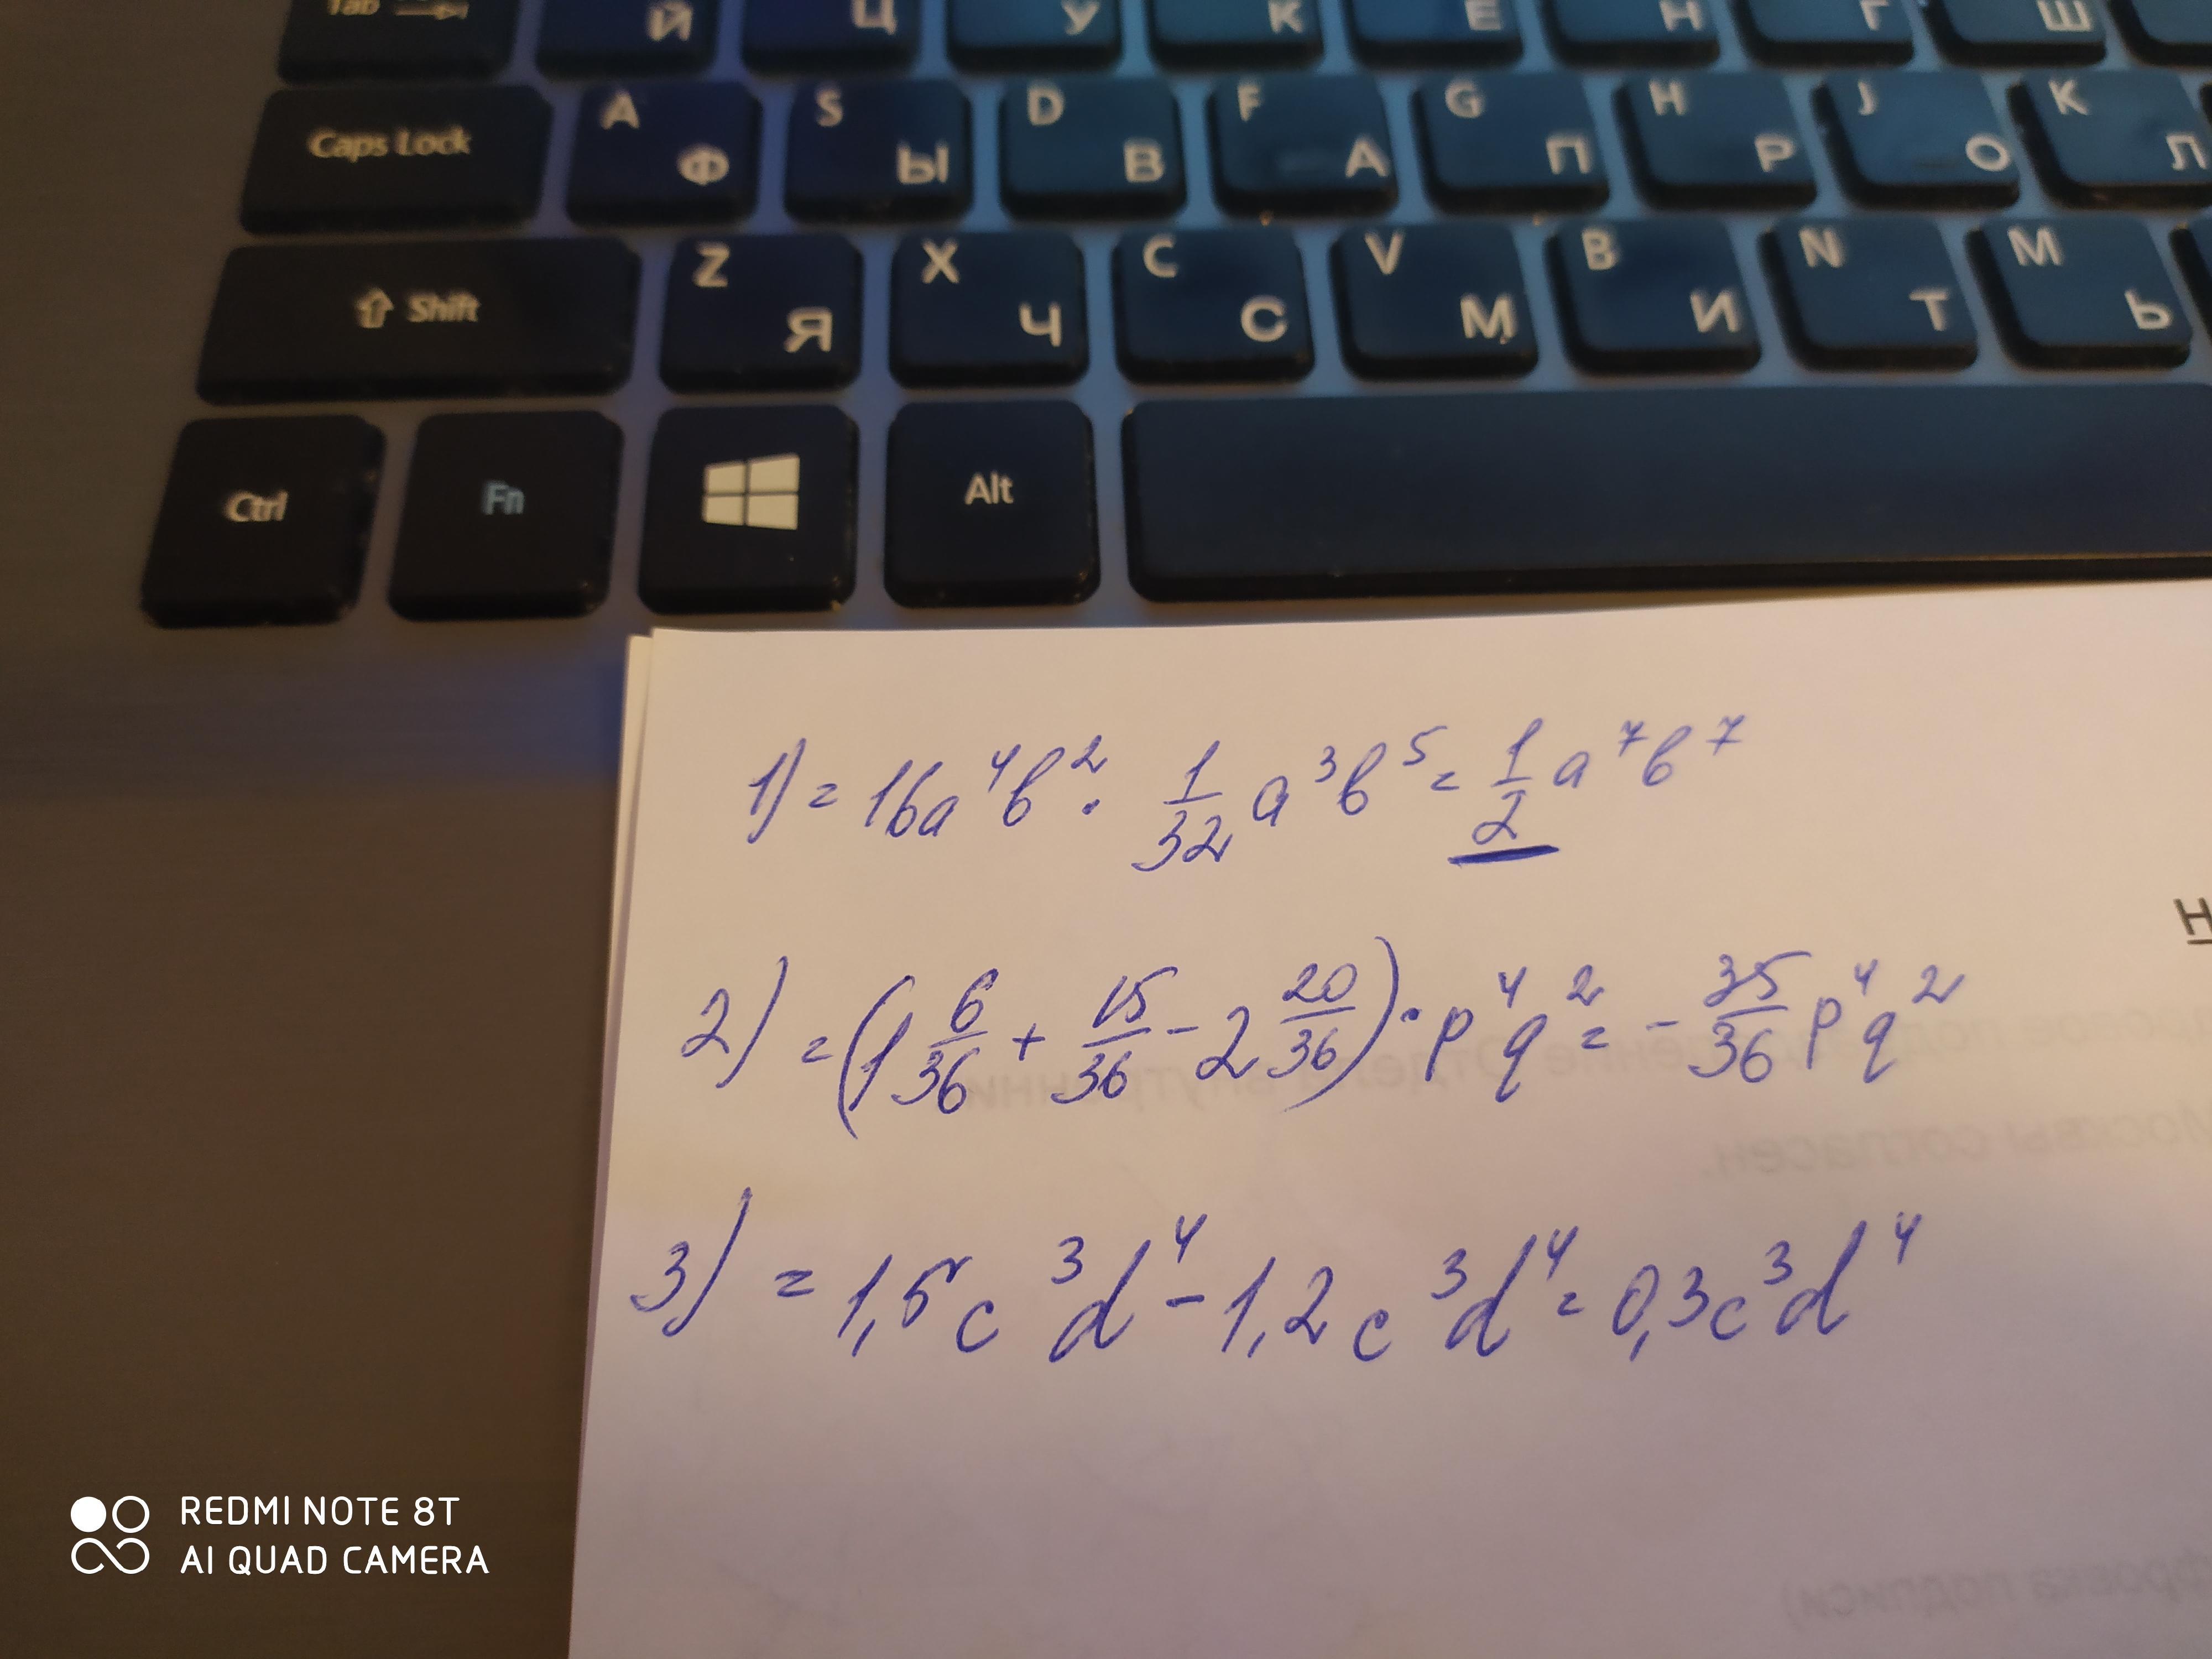 Tab Й Ц У К Е Н Г Ш
Caps Lock A Ф S Ы D В F А G П H Р J О K Л
Shift Z Я X Ч C С V М B И N Т M Ь
Ctrl Fn Alt
1) = 16a⁴b² · 1/32 a³b⁵ = 1/2 a⁷b⁷
2) = (1 6/36 + 15/36 - 2 20/36) · p⁴q² = - 35/36 p⁴q²
3) = 1,5c³d⁴ - 1,2c³d⁴ = 0,3c³d⁴
REDMI NOTE 8T
AI QUAD CAMERA